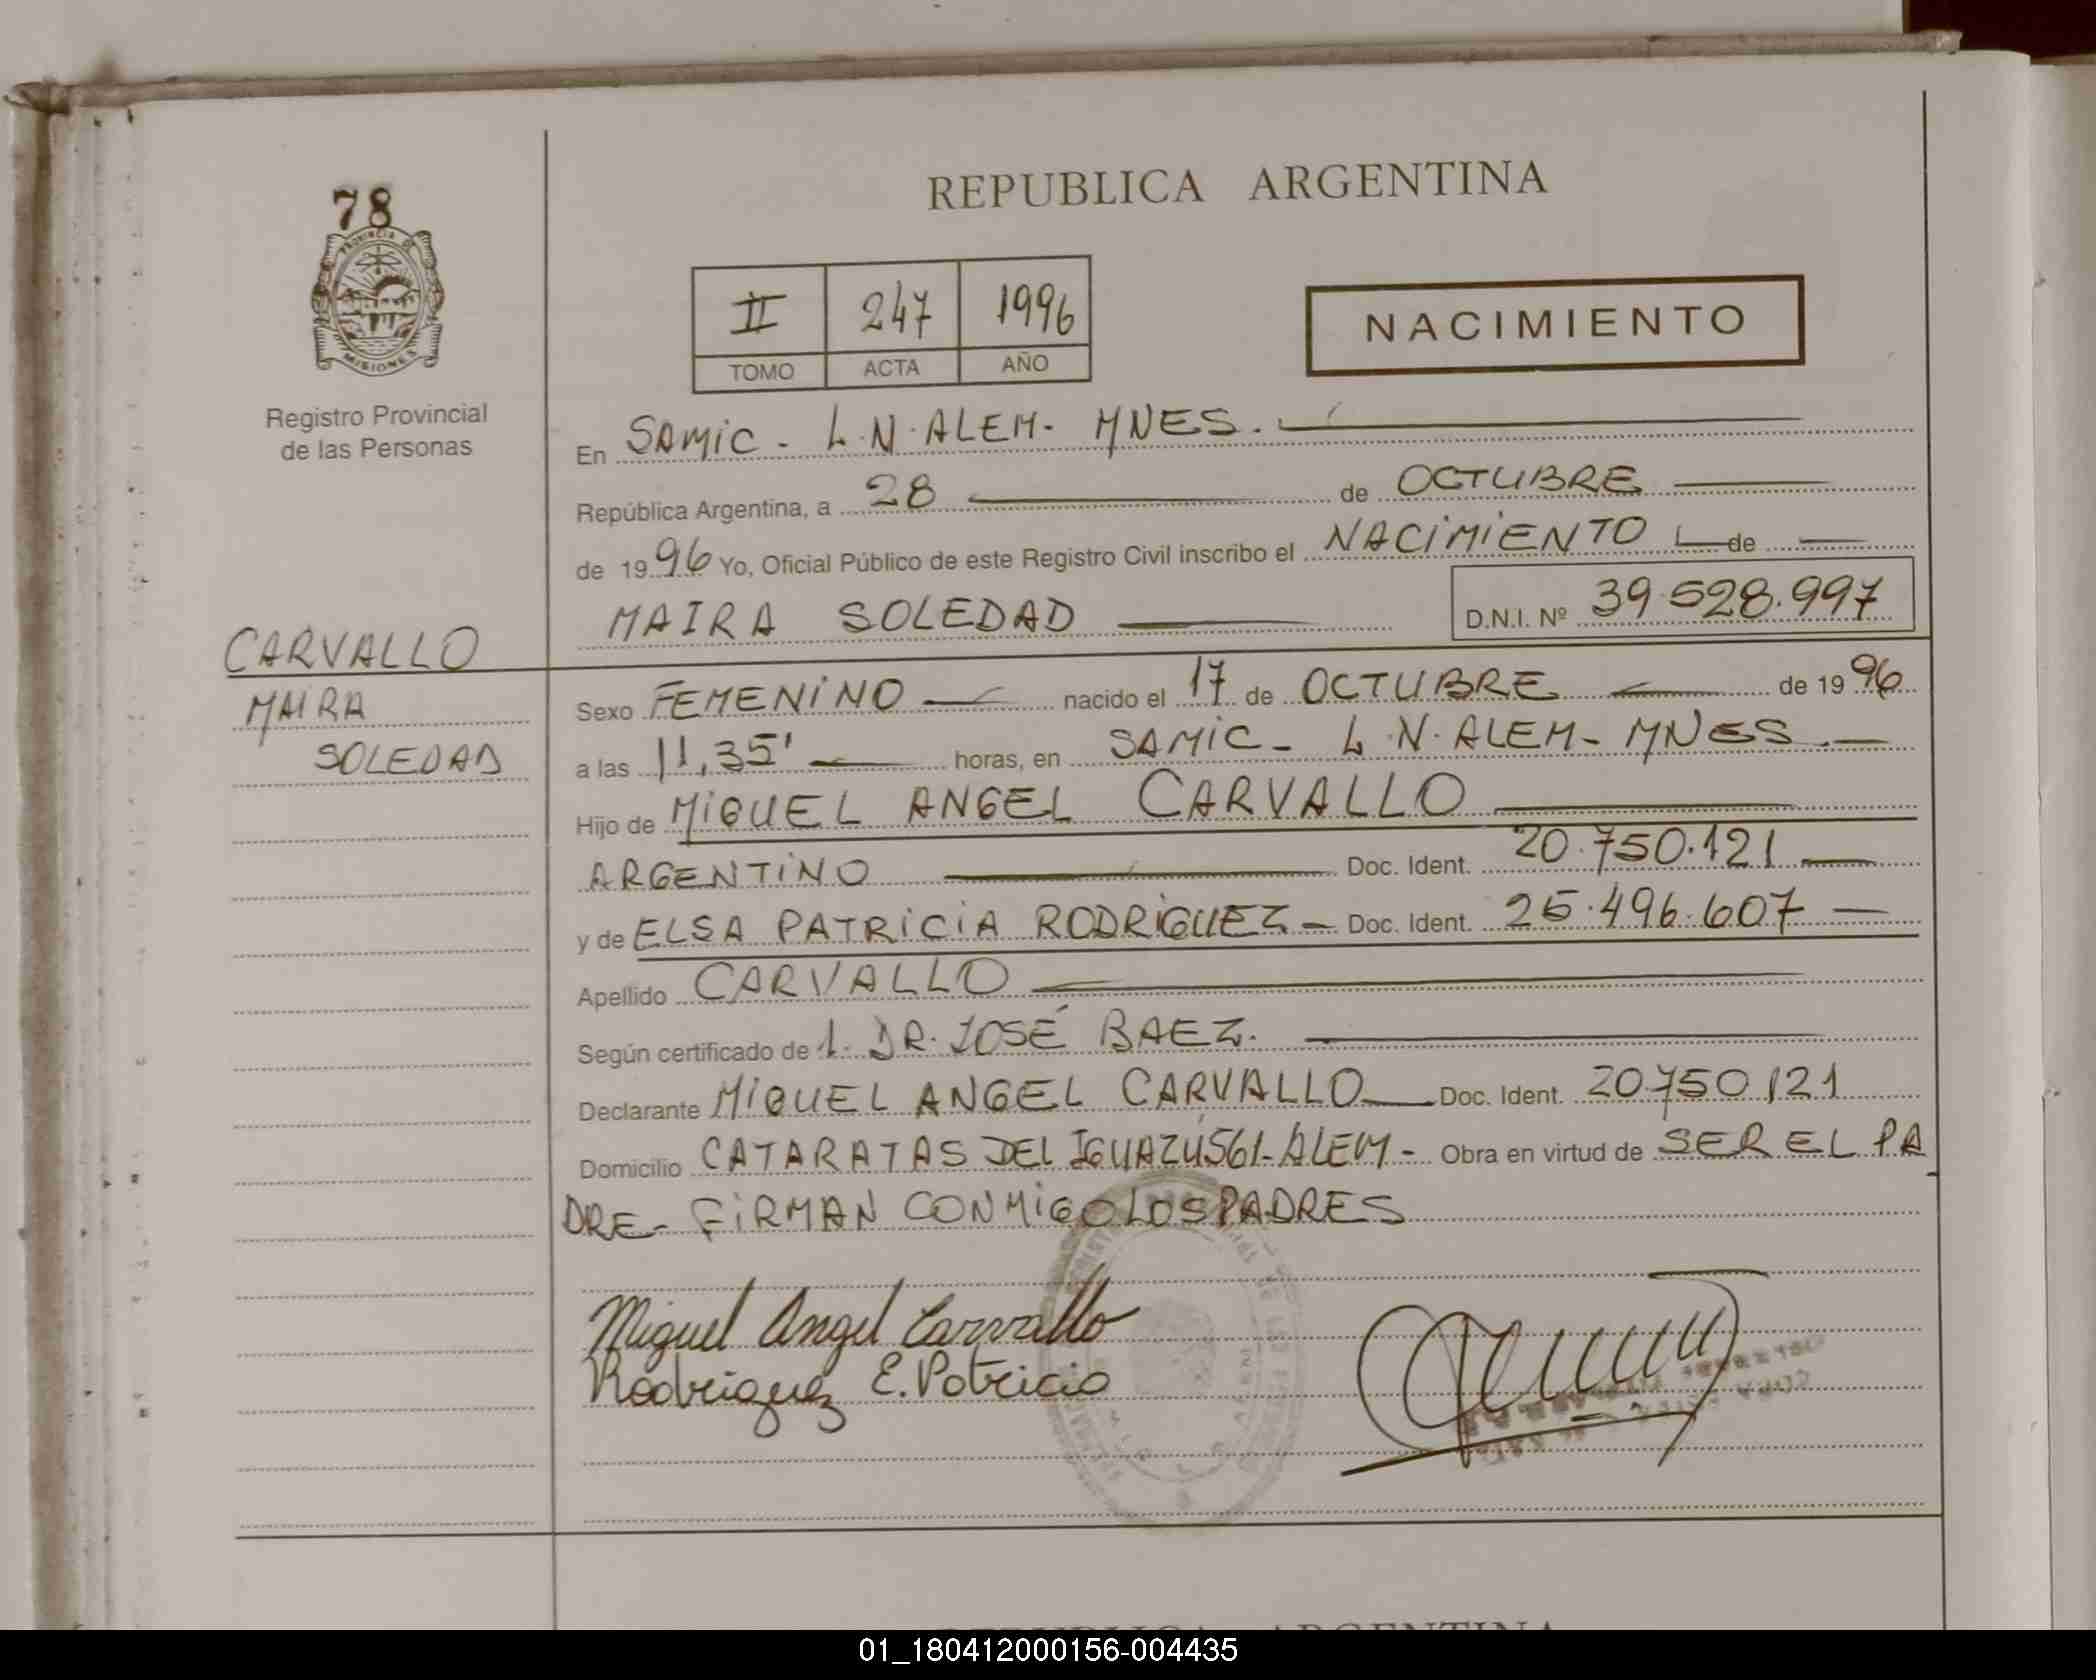 REPUBLICA ARGENTINA
78
PROVINCIA DE
MISIONES
Registro Provincial
de las Personas
II 247 1996
TOMO ACTA AÑO
NACIMIENTO
En SAMIC - L.N. ALEM - MNES.
República Argentina, a 28 de OCTUBRE
de 1996 Yo, Oficial Público de este Registro Civil inscribo el NACIMIENTO de
MAIRA SOLEDAD D.N.I. Nº 39.528.997
CARVALLO
MAIRA
SOLEDAD
Sexo FEMENINO nacido el 17 de OCTUBRE de 1996
a las 11,35' horas, en SAMIC - L.N. ALEM - MNES.
Hijo de MIGUEL ANGEL CARVALLO
ARGENTINO Doc. Ident. 20.750.121
y de ELSA PATRICIA RODRIGUEZ - Doc. Ident. 25.496.607
Apellido CARVALLO
Según certificado de 1. DR. JOSÉ BAEZ.
Declarante MIGUEL ANGEL CARVALLO Doc. Ident. 20.750.121
Domicilio CATARATAS DEL IGUAZÚ 561 - ALEM - Obra en virtud de SER EL PA
DRE - FIRMAN CONMIGO LOS PADRES
Miguel Angel Carvallo
Rodriguez E. Patricia
REPUBLICA ARGENTINA
01_180412000156-004435